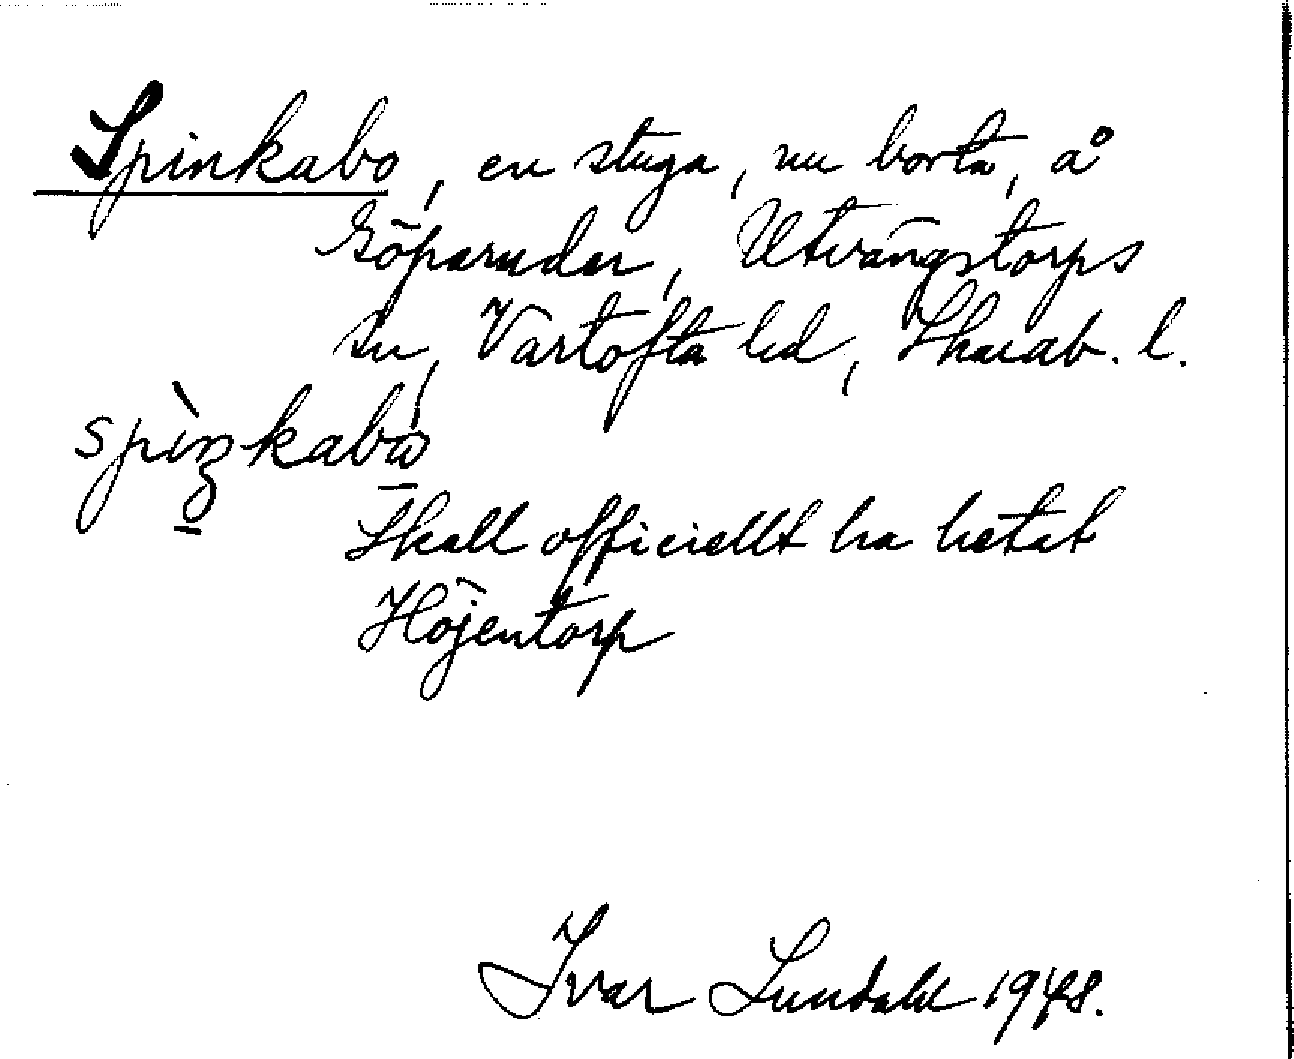 Spinkabo, en stuga, nu borta, å
Göparudar, Utvängstorps
sn, Vartofta hd, Skarab. l.
spìŋkabo
Skall officiellt ha hetat
Höjentorp
Ivar Lundahl 1948.